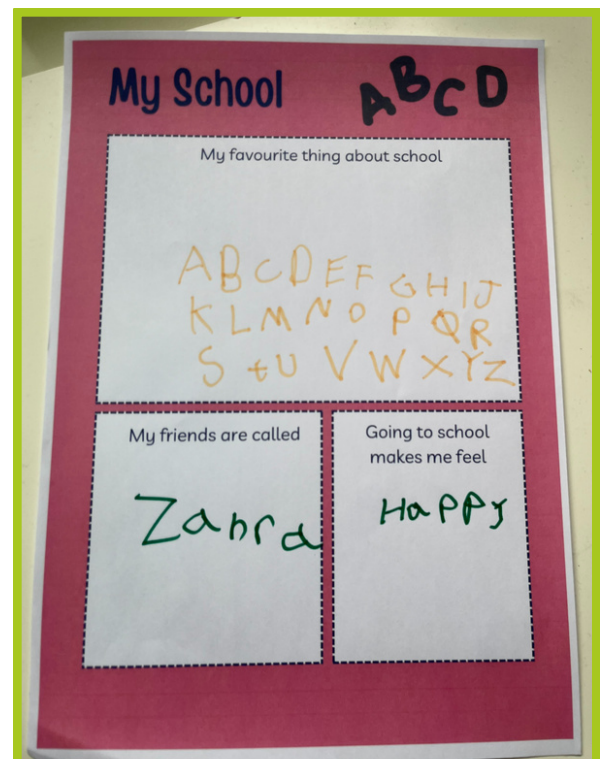 My School
ABCD
My favourite thing about school
ABCDEFGHIJ
KLMNOPQR
StUVWXYZ
My friends are called
Zahra
Going to school
makes me feel
HaPPy